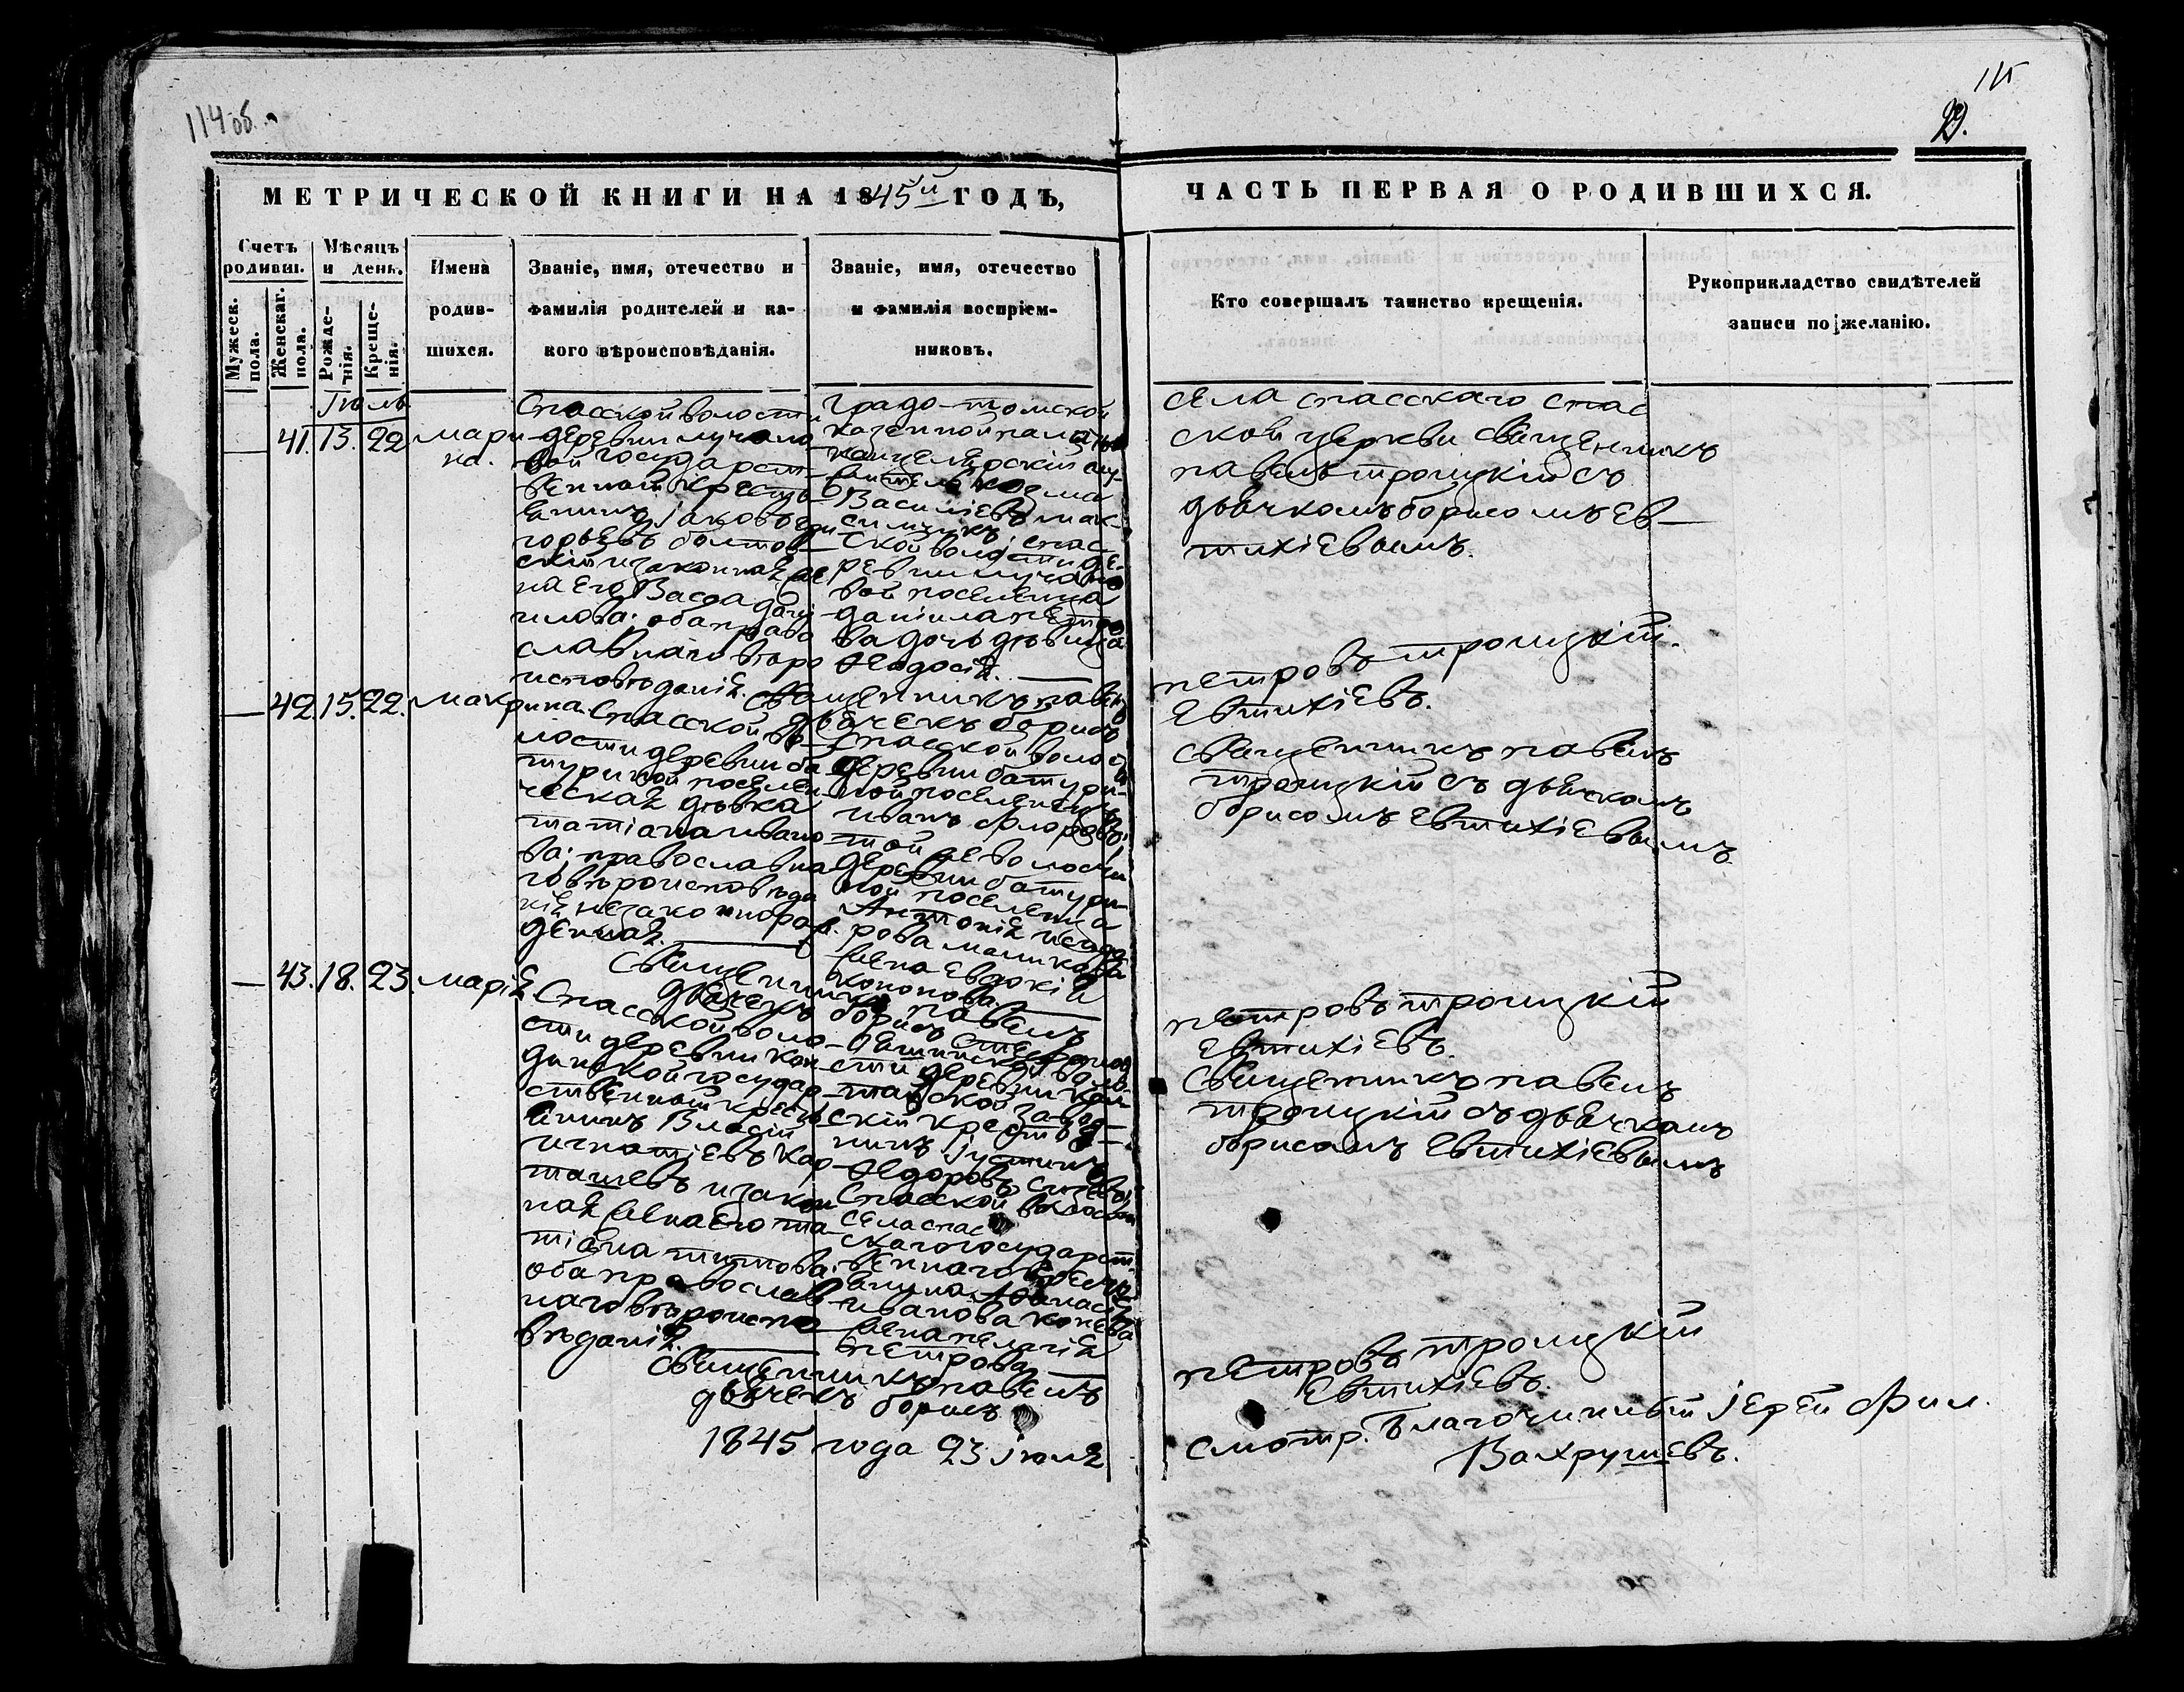 114 об.
115
29.
МЕТРИЧЕСКОЙ КНИГИ НА 1845й ГОДЪ,
ЧАСТЬ ПЕРВАЯ О РОДИВШИХСЯ.
Счетъ родивш.
Мужеск. пола.
Женскаг. пола.
Мѣсяцъ и день.
Рожденія.
Крещенія.
Имена
родив-
шихся.
Званіе, имя, отечество и
фамилія родителей и ка-
кого вѣроисповѣданія.
Званіе, имя, отечество
и фамилія воспріем-
никовъ.
Кто совершалъ таинство крещенія.
Рукоприкладство свидѣтелей
записи по желанію.
Іюль
41. 13. 22 мари
на.
Спасской волости
деревни лучано
вой государст-
венной кресть
янинъ Іаковъ
горьевъ болтов-
скій и законная же
на его Васса дани
лова; оба право
славнаго вѣро
исповѣданія.
Градо-томской
казенной палаты
канцелярскій слу-
житель козма
Василіевъ мак-
симъ спас-
ской волости де-
ревни лучано
вой поселенца
даніила петро
ва дочь дѣвица
Ѳеодосія.
села спасскаго спас
ской церкви священникъ
павелъ троицкій съ
дьячкомъ борисомъ ев-
тихіевымъ.
Священникъ павелъ
петровъ троицкій.
дьячекъ борисъ
Евтихіевъ.
42. 15. 22. макрина.
Спасской во-
лости деревни ба
туриной поселен-
ческая дѣвка
татіана ивано
ва; православна
го вѣроисповѣда
нія незаконнорож-
денная.
Спасской волости
деревни батури-
ной поселенецъ
иванъ флоровъ;
той же волости
деревни батури-
ной поселенца
жена евдокія
кононова.
Священникъ павелъ
троицкій съ дьячкомъ
борисомъ Евтихіевымъ
Священникъ павелъ
петровъ троицкій
дьячекъ борисъ
Евтихіевъ.
43. 18. 23. марія
Спасской воло-
сти деревни кан-
динской государ-
ственной кресть
янинъ Власій
игнатіевъ кар-
ташевъ и закон
ная жена его та-
тіана титова;
оба православ-
наго вѣроиспо-
вѣданія.
сти деревни кал-
тайской завод-
скій крестья-
нинъ Іустинъ
Ѳедоровъ
Спасской волости
села спас
скаго государст-
веннаго кресть
янина Аѳанасія
иванова конева
жена пелагія
петрова
Священникъ павелъ
троицкій съ дьячкомъ
борисомъ Евтихіевымъ
Священникъ павелъ
петровъ троицкій
дьячекъ борисъ
Евтихіевъ.
1845 года 23 іюля
смотр. Благочинный Іерей Фил.
Вахрушевъ.